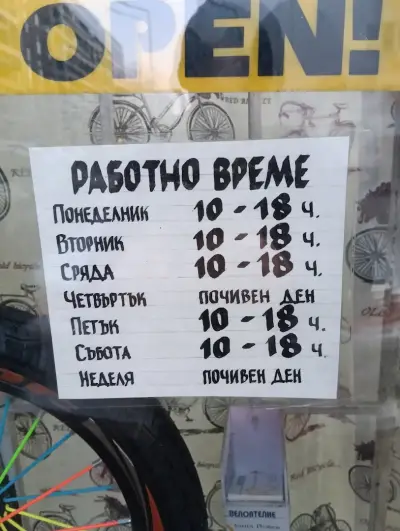 OPEN!
РАБОТНО ВРЕМЕ
ПОНЕДЕЛНИК 10 - 18 Ч.
ВТОРНИК 10 - 18 Ч.
СРЯДА 10 - 18 Ч.
ЧЕТВЪРТЪК ПОЧИВЕН ДЕН
ПЕТЪК 10 - 18 Ч.
СЪБОТА 10 - 18 Ч.
НЕДЕЛЯ ПОЧИВЕН ДЕН